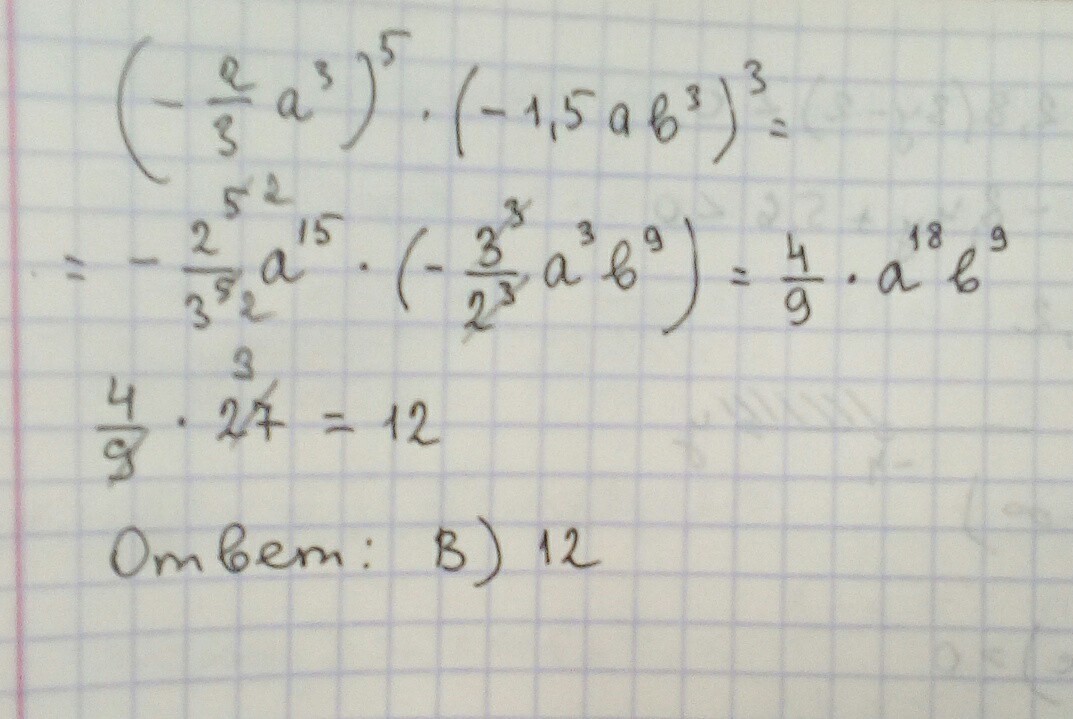 (- 2/3 a³)⁵ · (-1,5 ab³)³ =
= - 2⁵ ²/3⁵ ² a¹⁵ · (- 3³/2³ a³ b⁹) = 4/9 · a¹⁸ b⁹
4/9 · 27 ³ = 12
Ответ: В) 12